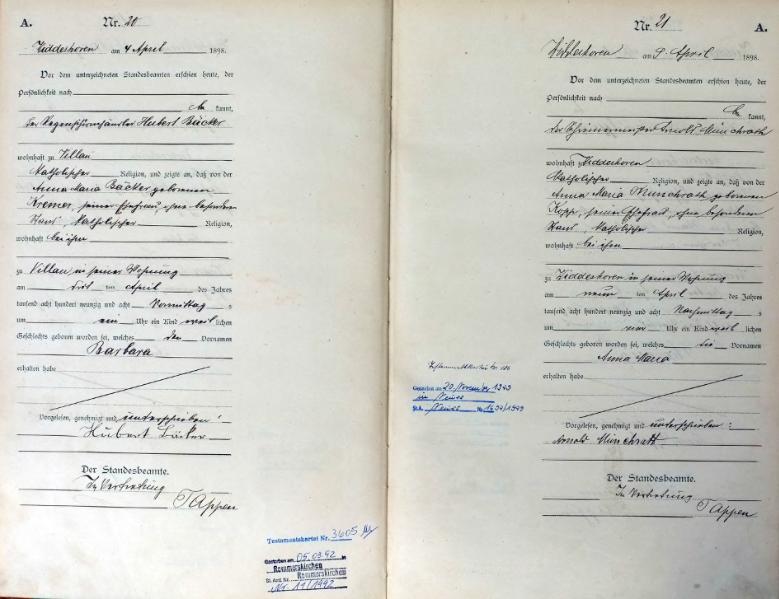 A.
Nr. 20
am 4 April 1898.
Vor dem unterzeichneten Standesbeamten erschien heute, der
Persönlichkeit nach
kannt,
der Regenschirmhändler Hubert Bäcker
wohnhaft zu Villau
Katholischer Religion, und zeigte an, daß von der
Anna Maria Bäcker geborenen
Kremer, seiner Ehefrau, ohne besonderen
Stand, Katholischer Religion,
wohnhaft bei ihm
zu Villau in seiner Wohnung
am ten April des Jahres
tausend acht hundert neunzig und acht Vormittag s
um ein Uhr ein Kind weib lichen
Geschlechts geboren worden sei, welches den Vornamen
Barbara
erhalten habe
Vorgelesen, genehmigt und unterschrieben
Hubert Bäcker
Der Standesbeamte.
In Vertretung
Tappen
Testamentskartei Nr. 3605
Gestorben am 05.03.92 in
Rommerskirchen
Rommerskirchen
Nr. 11/1992
Nr. 21
A.
am 9 April 1898.
Vor dem unterzeichneten Standesbeamten erschien heute, der
Persönlichkeit nach
kannt,
der Arnold Münchrath
wohnhaft
Katholischer Religion, und zeigte an, daß von der
Anna Maria Münchrath geborenen
Kopp, seiner Ehefrau, ohne besonderen
Stand, Katholischer Religion,
wohnhaft bei ihm
zu in seiner Wohnung
am neun ten April des Jahres
tausend acht hundert neunzig und acht Nachmittag s
um Uhr ein Kind weib lichen
Geschlechts geboren worden sei, welches die Vornamen
Anna Maria
erhalten habe
Vorgelesen, genehmigt und unterschrieben:
Arnold Münchrath
Der Standesbeamte.
In Vertretung
Tappen
Gestorben am 20. November 1979
in Neuss
Neuss Nr.